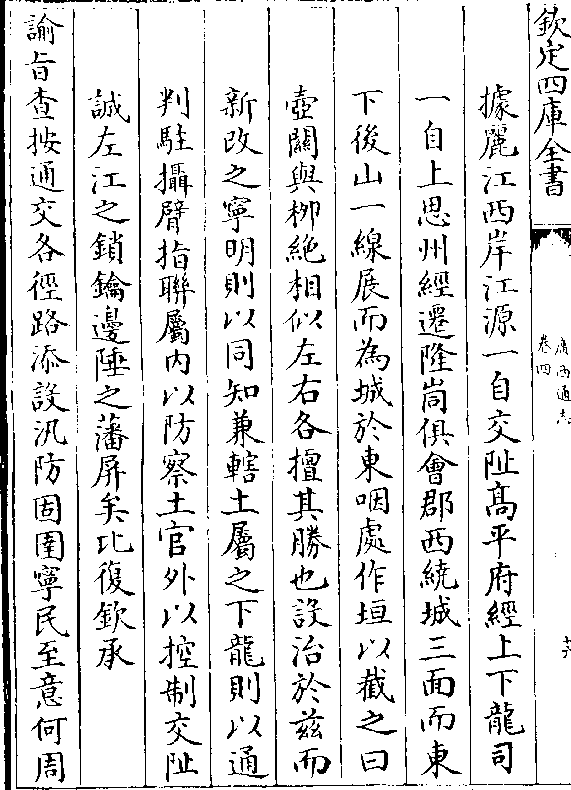 欽定四庫全書
廣西通志
卷四
據麗江西岸江源一自交阯髙平府經上下龍司
一自上思州經遷隆峝俱會郡西繞城三面而東
下後山一線展而為城於東咽處作垣以截之曰
壺關與栁絶相似左右各擅其勝也設治於兹而
新改之寧明則以同知兼轄土屬之下龍則以通
判駐攝臂指聯屬内以防察土官外以控制交阯
誠左江之鎖鑰邊陲之藩屏矣比復欽承
諭旨查按通交各徑路添設汛防固圉寧民至意何周